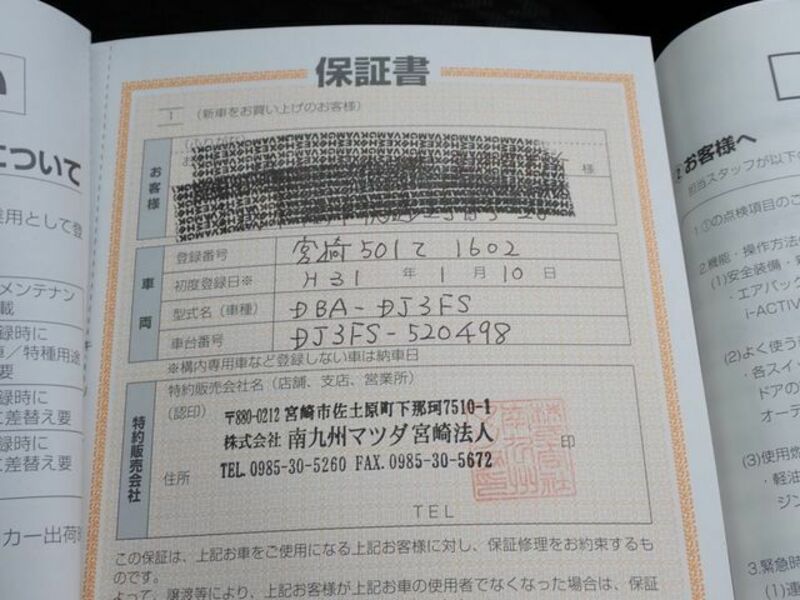 保証書
1 (新車をお買い上げのお客様)
お客様
様
車両
登録番号 宮崎501て 1602
初度登録日※ H31 年 1 月 10 日
型式名(車種) DBA-DJ3FS
車台番号 DJ3FS-520498
※構内専用車など登録しない車は納車日
特約販売会社
特約販売会社名(店舗、支店、営業所)
(認印)
〒880-0212 宮崎市佐土原町下那珂7510-1
株式会社 南九州マツダ宮崎法人
印
住所
TEL. 0985-30-5260 FAX. 0985-30-5672
TEL
この保証は、上記お車をご使用になる上記お客様に対し、保証修理をお約束するも
のです。
よって、譲渡等により、上記お客様が上記お車の使用者でなくなった場合は、保証
について
用として登
メンテナン
載
録時に
車/特種用途
要
録時に
に差替え要
録時に
に差替え要
カー出荷
お客様へ
担当スタッフが以下の
1.①の点検項目のご
2.機能・操作方法
(1)安全装備・
・エアバック
i-ACTIV
(2)よく使う
・各スイッ
ドアの
オーデ
(3)使用燃
・軽油
ジン
3.緊急時
(1)連